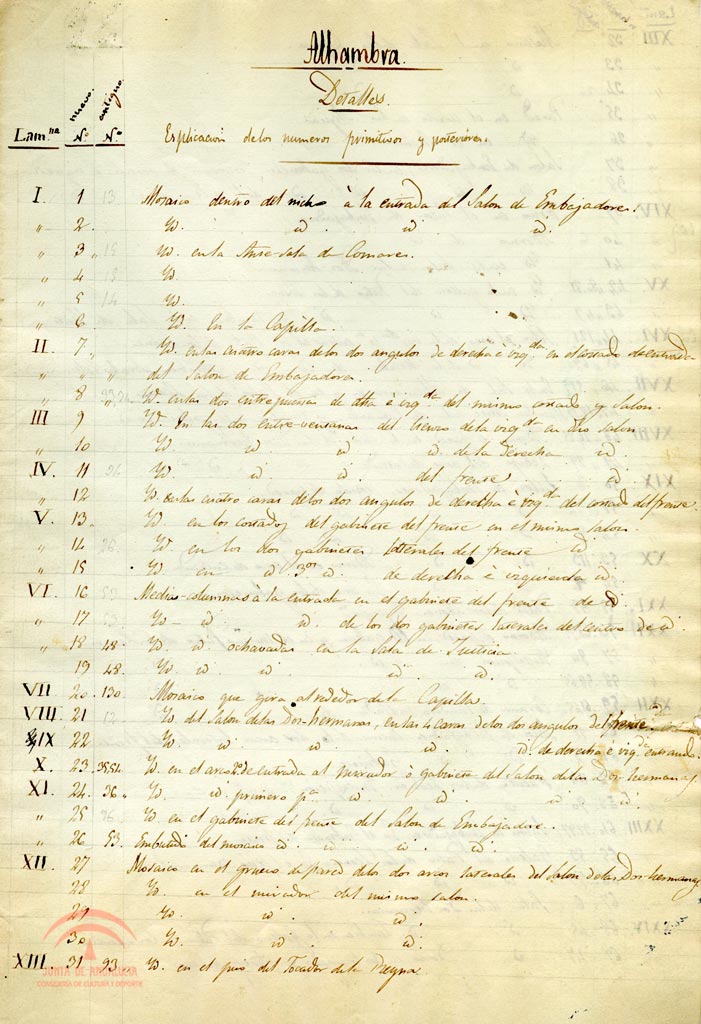 Alhambra.
Detalles.
Lam.na nuevo. N.o antiguo. N.o
Esplicacion de los numeros primitivos y posteriores.
I. 1 13 Mosaico dentro del nicho à la entrada del Salon de Embajadores.
" 2. Yd. id. id. id.
" 3 " 15 Yd. en la Ante-sala de Comares.
" 4 15 Yd.
" 5 14 Yd.
" 6 Yd. En la Capilla.
II. 7 " Yd. en las cuatro caras de los dos angulos de derecha é izq.da en el costado de entrada
" " " del Salon de Embajadores.
" 8 Yd. en las dos entrepuertas de é izq.da del mismo costado y Salon.
III 9 Yd. En las dos entre-ventanas del lienzo de la izq.da en dho salon
" 10 Yd. id. id. id. de la derecha id.
IV. 11 Yd. id. id. del frente id.
" 12 Yd. en las cuatro caras de los dos angulos de derecha é izq.da del costado del frente.
V. 13. Yd. en los costados del gabinete del frente en el mismo salon.
" 14 26. Yd. en los dos gabinetes laterales del frente id.
" 15 Yd. en id. 3.os id. de derecha é izquierda id.
VI. 16 Medias-columnas à la entrada en el gabinete del frente de id.
" 17 Yd. id. id. de los dos gabinetes laterales del centro de id.
" 18 48. Yd. id. ochavadas en la Sala de Justicia.
19 48. Yd. id. id. id. id.
VII 20. 130 Mosaico que gira alrededor de la Capilla.
VIII. 21 12 Yd. del Salon de las Dos-hermanas, en las 4 caras de los dos angulos del frente
IX 22 Yd. id. id. id. id. de derecha é izq.da entrando.
X. 23 Yd. en el arco de entrada al mirador ò gabinete del Salon de las Dos-hermanas.
XI. 24. 36 " Yd. id. primero p.a id. id. id. id.
" 25 36. Yd. en el gabinete del frente del Salon de Embajadores.
" 26 53. Embutido del mosaico id. id. id. id.
XII. 27 Mosaico en el grueso de pared de los dos arcos laterales del Salon de las Dos-hermanas
28 Yd. en el mirador del mismo salon.
29 Yd. id. id.
30 Yd. id. id.
XIII. 31 93 Yd. en el piso del Tocador de la Reyna.
JUNTA DE ANDALUCIA
CONSEJERÍA DE CULTURA Y DEPORTE